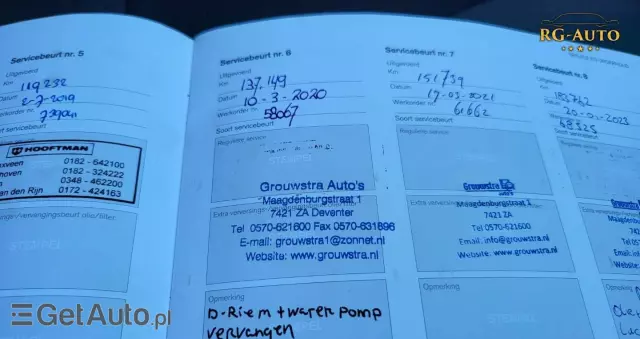 RG-AUTO
Servicebeurt nr. 5
Uitgevoerd
Km
119232
Datum
2-7-2019
Werkorder nr.
Soort servicebeurt
HOOFTMAN
0182 - 642100
0182 - 324222
0348 - 462200
en den Rijn 0172 - 424163
STEMPEL
Servicebeurt nr. 6
Uitgevoerd
Km
137.149
Datum
10-3-2020
Werkorder nr.
58067
Soort servicebeurt
Reguliere service
STEMPEL
Grouwstra Auto's
Maagdenburgstraat 1
7421 ZA Deventer
Tel 0570-621600 Fax 0570-631896
E-mail: grouwstra1@zonnet.nl
Website: www.grouwstra.nl
Opmerking
D-Riem + waterpomp
vervangen
STEMPEL
Servicebeurt nr. 7
Uitgevoerd
Km
151739
Datum
17-03-2021
Werkorder nr.
61662
Soort servicebeurt
Reguliere service
Grouwstra
Maagdenburgstraat 1
7421 ZA Deventer
Tel. 0570-621600
Email. info@grouwstra.nl
Website: www.grouwstra.nl
Opmerking
STEMPEL
Servicebeurt nr. 8
Uitgevoerd
Km
Datum
Werkorder nr.
68325
Soort servicebeurt
Reguliere service
Opmerking
GetAuto.pl